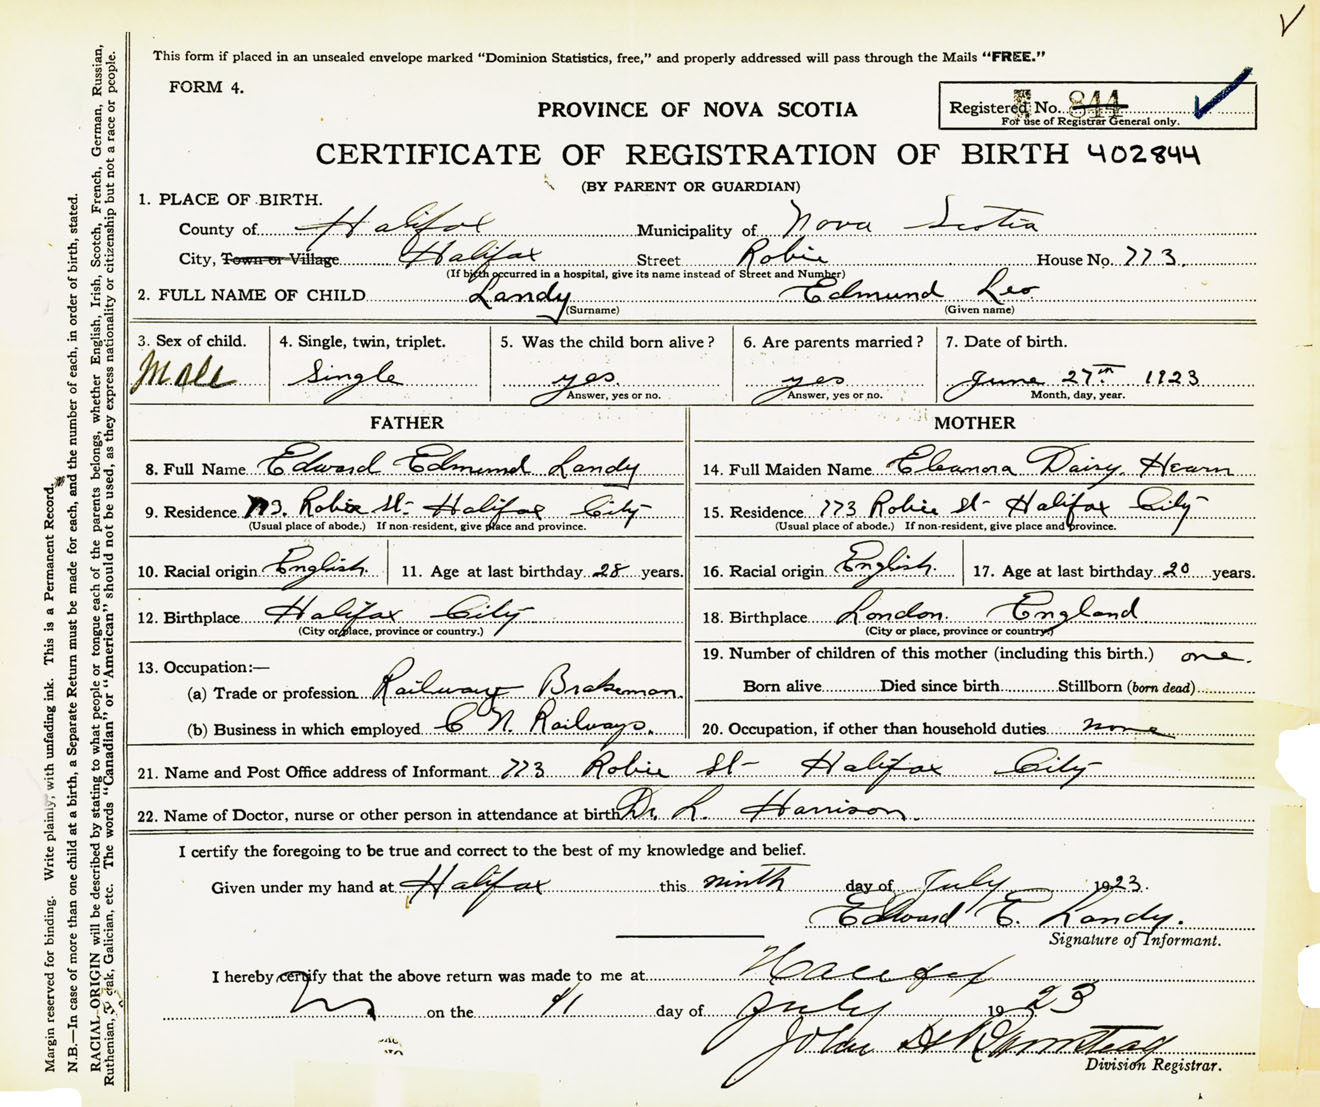 This form if placed in an unsealed envelope marked “Dominion Statistics, free,” and properly addressed will pass through the Mails “FREE.”
FORM 4.
Registered No. 844
For use of Registrar General only.
PROVINCE OF NOVA SCOTIA
CERTIFICATE OF REGISTRATION OF BIRTH 402844
(BY PARENT OR GUARDIAN)
1. PLACE OF BIRTH.
County of Halifax Municipality of Nova Scotia
City, Town or Village Halifax Street Robie House No. 773
(If birth occurred in a hospital, give its name instead of Street and Number)
2. FULL NAME OF CHILD Landy Edmund Leo
(Surname) (Given name)
3. Sex of child. 4. Single, twin, triplet. 5. Was the child born alive? 6. Are parents married? 7. Date of birth.
Male Single yes. yes June 27th 1923
Answer, yes or no. Answer, yes or no. Month, day, year.
FATHER
8. Full Name Edward Edmund Landy
9. Residence 773. Robie St- Halifax City
(Usual place of abode.) If non-resident, give place and province.
10. Racial origin English. 11. Age at last birthday 28 years.
12. Birthplace Halifax City
(City or place, province or country.)
13. Occupation:—
(a) Trade or profession Railway Brakeman.
(b) Business in which employed C N. Railways.
MOTHER
14. Full Maiden Name Eleanora Daisy Hearn
15. Residence 773 Robie St- Halifax City
(Usual place of abode.) If non-resident, give place and province.
16. Racial origin English. 17. Age at last birthday 20 years.
18. Birthplace London. England
(City or place, province or country.)
19. Number of children of this mother (including this birth.) one.
Born alive Died since birth Stillborn (born dead)
20. Occupation, if other than household duties none
21. Name and Post Office address of Informant 773 Robie St- Halifax City
22. Name of Doctor, nurse or other person in attendance at birth Dr. L. Harrison.
I certify the foregoing to be true and correct to the best of my knowledge and belief.
Given under my hand at Halifax this ninth day of July 1923.
Edward E. Landy.
Signature of Informant.
I hereby certify that the above return was made to me at Halifax
on the day of July 1923
John
Division Registrar.
Margin reserved for binding. Write plainly, with unfading ink. This is a Permanent Record.
N.B.—In case of more than one child at a birth, a Separate Return must be made for each, and the number of each, in order of birth, stated.
RACIAL ORIGIN will be described by stating to what people or tongue each of the parents belongs, whether English, Irish, Scotch, French, German, Russian,
Ruthenian, Galician, etc. The words “Canadian” or “American” should not be used, as they express nationality or citizenship but not a race or people.